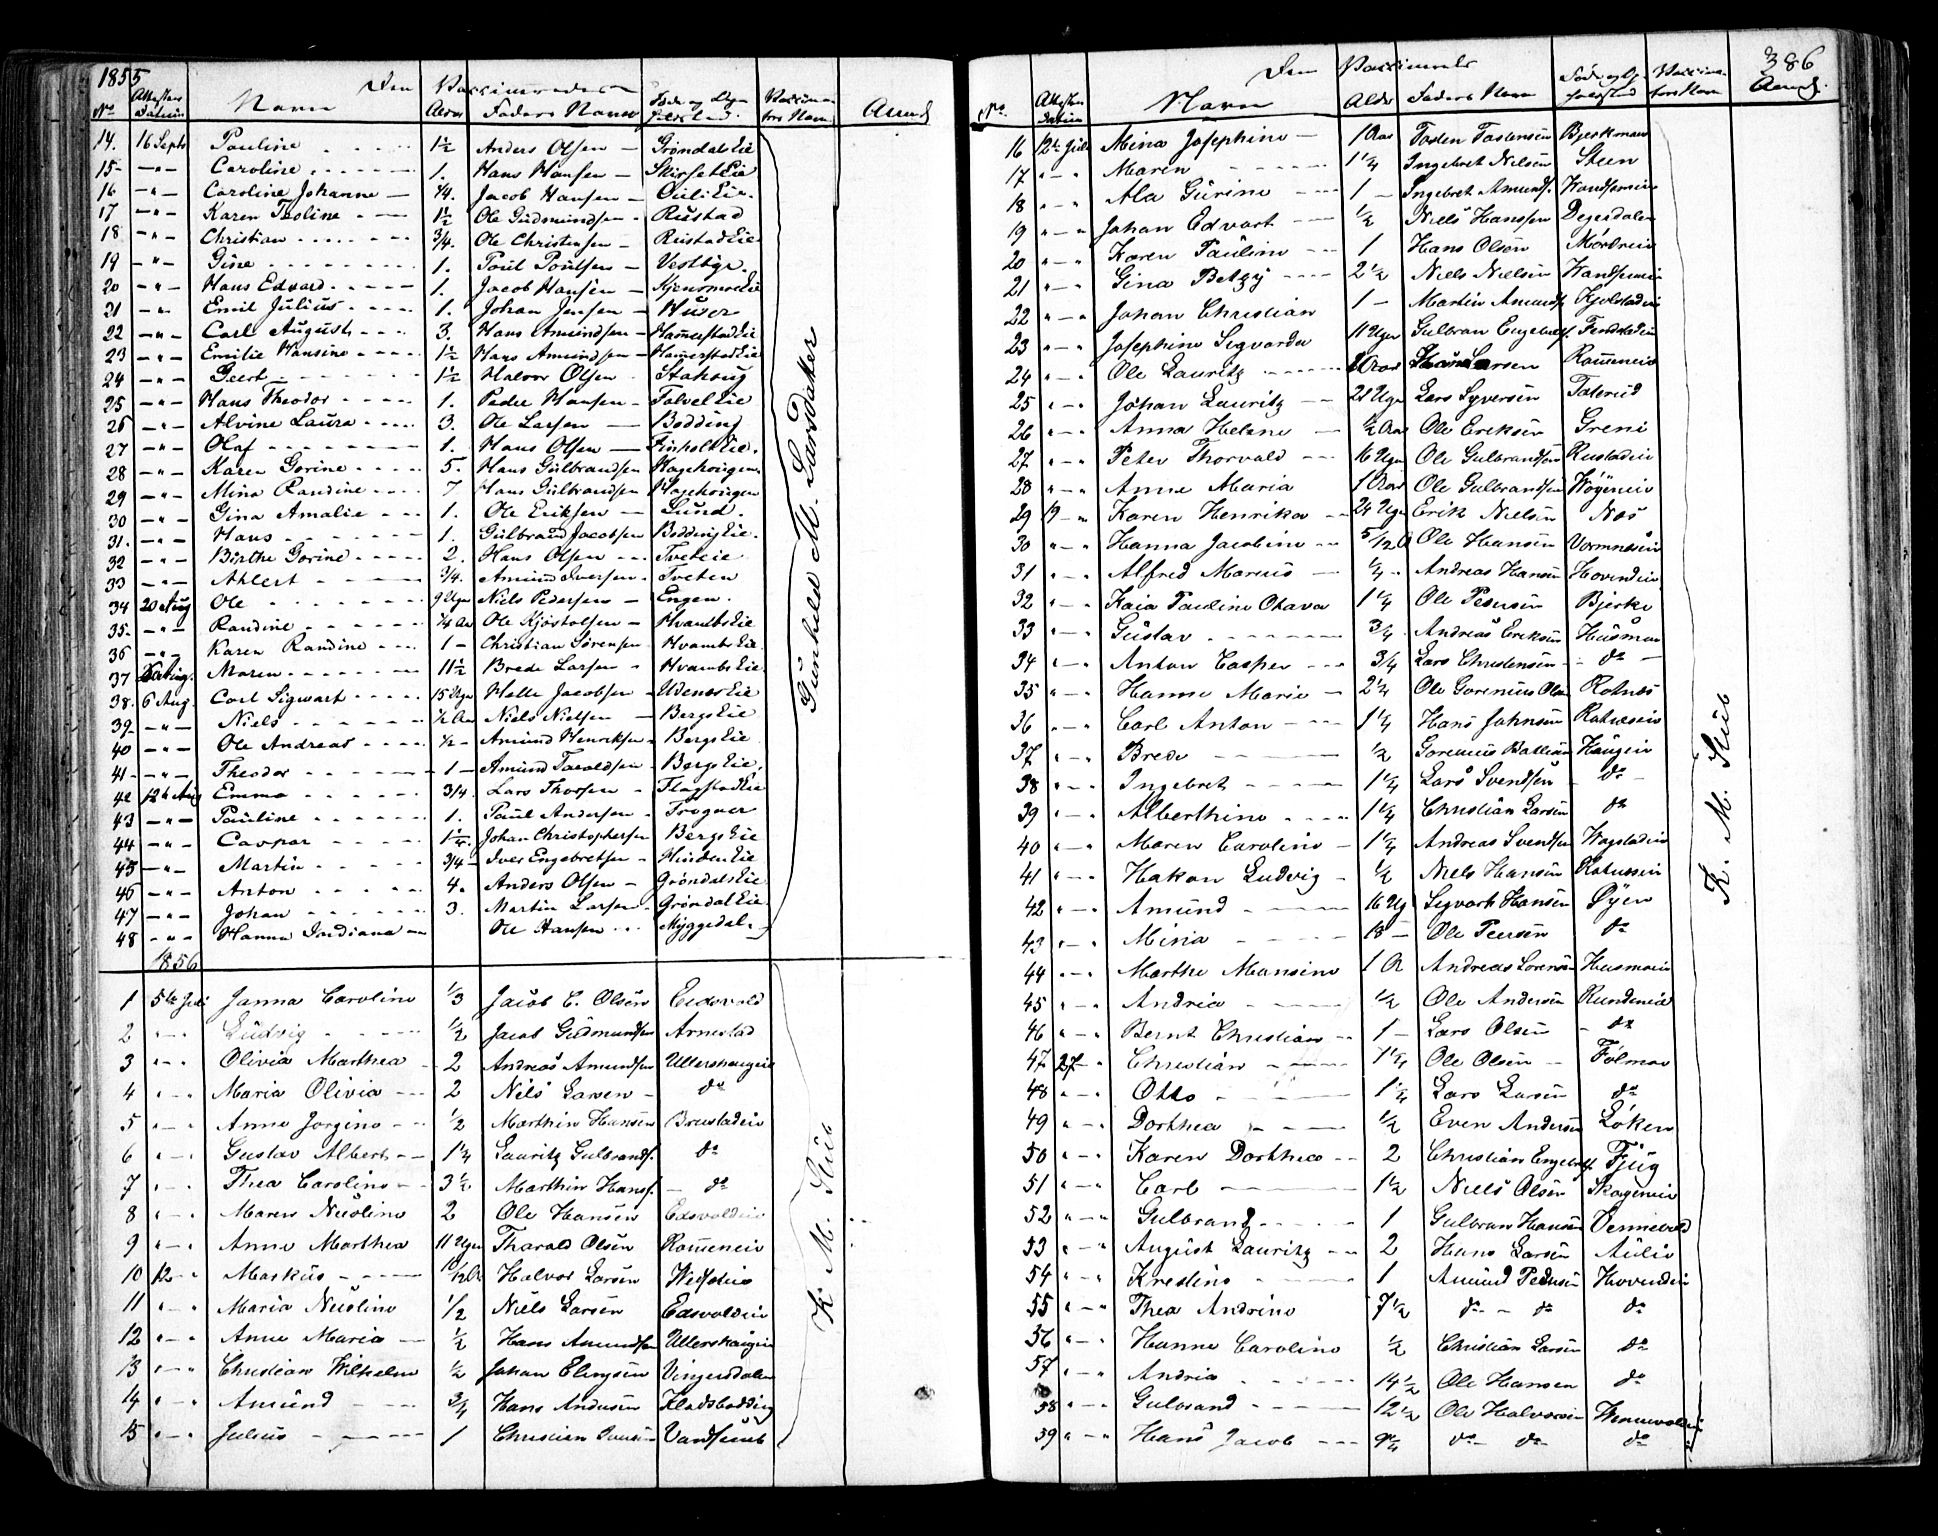 1855
Den Vaccineredes
No Attestens Datum Navn Alder Faders Navn Føde og Op-holdsted. Vaccina-tors Navn Anm
14. 16 Septb Pauline 1½ Anders Olsen — Grøndals Eie
15 — " — Caroline 1. Hans Hansen — Skirset Eie
16 — " — Caroline Johanne — ¼. Jacob Hansen — Ouli Eie.
17 — " — Karen Teoline 1½ Ole Gudmundsen - Rustad
18 — " — Christian ¾. Ole Christensen — Rustad Eie
19 — " — Gine 1. Poul Poulsen — Vestbye.
20 — " — Hans Edvard 1. Jacob Hansen — Kjensmoe Eie
21 — " — Emil Julius 1. Johan Jensen — Huser
22 — " — Carl August 3. Hans Amundsen — Hammerstad Eie
23 — " — Emilie Hansine 1½ Hans Amundsen — Hammerstad Eie
24 — " — Geert 1½ Halvor Olsen Stakoug
25 — " — Hans Theodor 1. Peder Hansen — Tolvel Eie
26 — " — Alvine Laura 3. Ole Larsen — Bødding
27 — " — Olaf 1. Hans Olsen — Finholt Eie.
28 — " — Karen Gorine 5. Hans Gulbrandsen Hagehougen
29 — " — Mina Randine 7 Hans Gulbrandsen Hagehougen
30 — " — Gina Amalie 1. Ole Eriksen — Lund.
31. — " — Hans 1. Gulbrand Jacobsen Bødding Eie.
32 — " — Birthe Gorine 2. Hans Olsen Tveteie
33 — " — Ahlert ¾. Amund Iversen. Tveten
34 20 Aug Ole 9 Uger Niels Pedersen — Engen.
35. — " — Randine ¼ Aar Ole Kjøstolsen — Hvambs Eie
36 — " — Karen Randine 1 — Christian Sørensen Hvambs Eie
37 Aug. Maren 11½ Brede Larsen — Hvambs Eie.
38. 6 Aug. Carl Sigwart 15 Uger Helle Jacobsen — Udenæs Eie
39 — " — Niels ½ Aar Niels Nielsen — Bergs Eie
40 — " — Ole Andreas ½ — Amund Henriksen — Bergs Eie
41 — " — Theodor — 1 — Amund Taraldsen — Bergs Eie.
42 12te Aug Emma ¾. Lars Thorsen — Flagstad Eie
43 — " — Pauline 1. Paul Andersen — Trogner
44 — " — Caspar 1¼. Johan Christophersen Bergs Eie
45 — " — Martin ¾ — Iver Engebretsen — Hinden Eie
46 — " — Anton 4. Anders Olsen — Grøndals Eie
47 — " — Johan 3. Martin Larsen — Grøndal Eie
48 — " — Hanna Jordiana — Ole Hansen Myggedal
Gunhild M. Sandaker
1856
1 5te Juli Janna Caroline ⅓ Jacob C. Olsen Eidsvold
2 " — " Ludvig ½ Jacob Gudmundsen Arnestad
3 " — " Olivia Marthea 2 Andreas Amundsen Ullershaugeie
4 " — " Maria Olivia 2 Nils Larsen — do
5 " — " Anne Jorgine ½ Marthin Hansen Brustadeie
6 " — " Gustav Albert 1¼ Lauritz Gulbrands. do
7 " — " Thea Caroline 3½ Marthin Hans. — do
8 " — " Maren Nicoline 2 Ole Hansen Edsvoldeie
9 " — " Anne Marthea 11 Uger Tharald Olsen Rømmeneie
10 12 " Markus 10/12 A Halvor Larsen
11 " — " Maria Nicoline ½ Niels Larsen Edsvoldeie
12 " — " Anne Maria ½ Hans Amundsen Ullershaugeie
13 " — " Christian Wilhelm ½ Johan Elingsen Vingersdalen
14 " — " Amund ¾ Hans Andersen Kladsbødding
15 " — " Julius 1 Christian
K. M. Stub
386
Den Vaccinerede
No. Attestens Datum Navn Alder Faders Navn Føde og Op-holdsted Vaccina-tors Navn Anm.
16 12te Juli Mina Josephine — 1 Aar Tosten Tostensen Bjerkenæs
17 " — " Maren 1¼ Ingebret Nilsen Steen
18 " — " Ala Gurine 1 — Ingebret Amunds.
19 " — " Johan Edvart ½ Niels Hanssen Degerdalen
20 " — " Karen Pauline 1 Hans Olsen Mørkeie
21 " — " Gina Betzy 2½ Niels Nielsen
22 " — " Johan Christian 1 — Martin Amunds. Kjølstadeie
23 " — " Josephine Sigvarda 11 Uger Gulbran Engebrets. Findstadeie
24 " — " Ole Lauritz Aar Larsen Rømmeneie
25 " — " Johan Lauritz 21 Uger Lars Syversen Taterud
26 " — " Anna Helene ½ Aar Ole Eriksen Greni
27 " — " Peter Thorvald 16 Uger Ole Gulbrandsen Rustadeie
28 " — " Anne Maria 1 Aar Ole Gulbrandsen Høyeneie
29 19 — " Karen Henrika 24 Uger Erik Nielsen Næs
30 " — " Hanna Jacobine 5/12 A Ole Hansen Vormnæseie
31 " — " Alfred Marius ¼ Andreas Hansen Hovindeie
32 " — " Kaia Pauline Otava 1¼ Ole Pedersen Bjerke
33 " — " Gustav ¾. Andreas Eriksen Husmoe
34 " — " Anton Casper ¾ Lars Christensen — do —
35 " — " Hanne Marie 2¼ Ole Gorenius Ols. Rotnes
36 " — " Carl Anton 1¼ Hans Johnsen Rotneseie
37 " — " Brede ½ Gorenius Haugeie
38 " — " Ingebret 1¼ Lars Svendsen — do —
39 " — " Alberthine 1¼ Christian Larsen do
40 " — " Maren Caroline 1¼ Andreas Svendsen Wagstadeie
41 " — " Hakon Ludvig ½ Niels Hansen Rotneseie
42 " — " Amund 16 Ug Segvart Hansen Øyen
43 " — " Mina 18 — Ole Peersen do
44 " — " Marthe Mansine 1 A Andreas Lorensen Husmoeie
45 " — " Andrea ½ Ole Andersen Rundeneie
46 " — " Bernt Christian 1 — Lars Olsen — do
47 27 — " Christian 1¼ Ole Olsen — Følmoe
48 " — " Otto 1½ Lars Larsen do
49 " — " Dorthea ½ Even Andersen Løken
50 " — " Karen Dorthea 2 Christian Engebrets. Fjug
51 " — " Carl 1½ Niels Olsen Skogeneie
52 " — " Gulbrand 1 Gulbran Hansen Vennevold
53 " — " August Lauritz 2 Hans Larsen Aulie
54 " — " Kristine 1 Amund Pedersen Hovindeie
55 " — " Thea Andrine 7½ do — do do
56 " — " Hanne Caroline ½ Christian Larsen do
57 " — " Andrea 14½ Ole Hansen do
58 " — " Gulbrand 12½ Ole Halvorsen Wennevoldeie
59 " — " Hans Jacob 9¼ do — do do
K. M. Stub